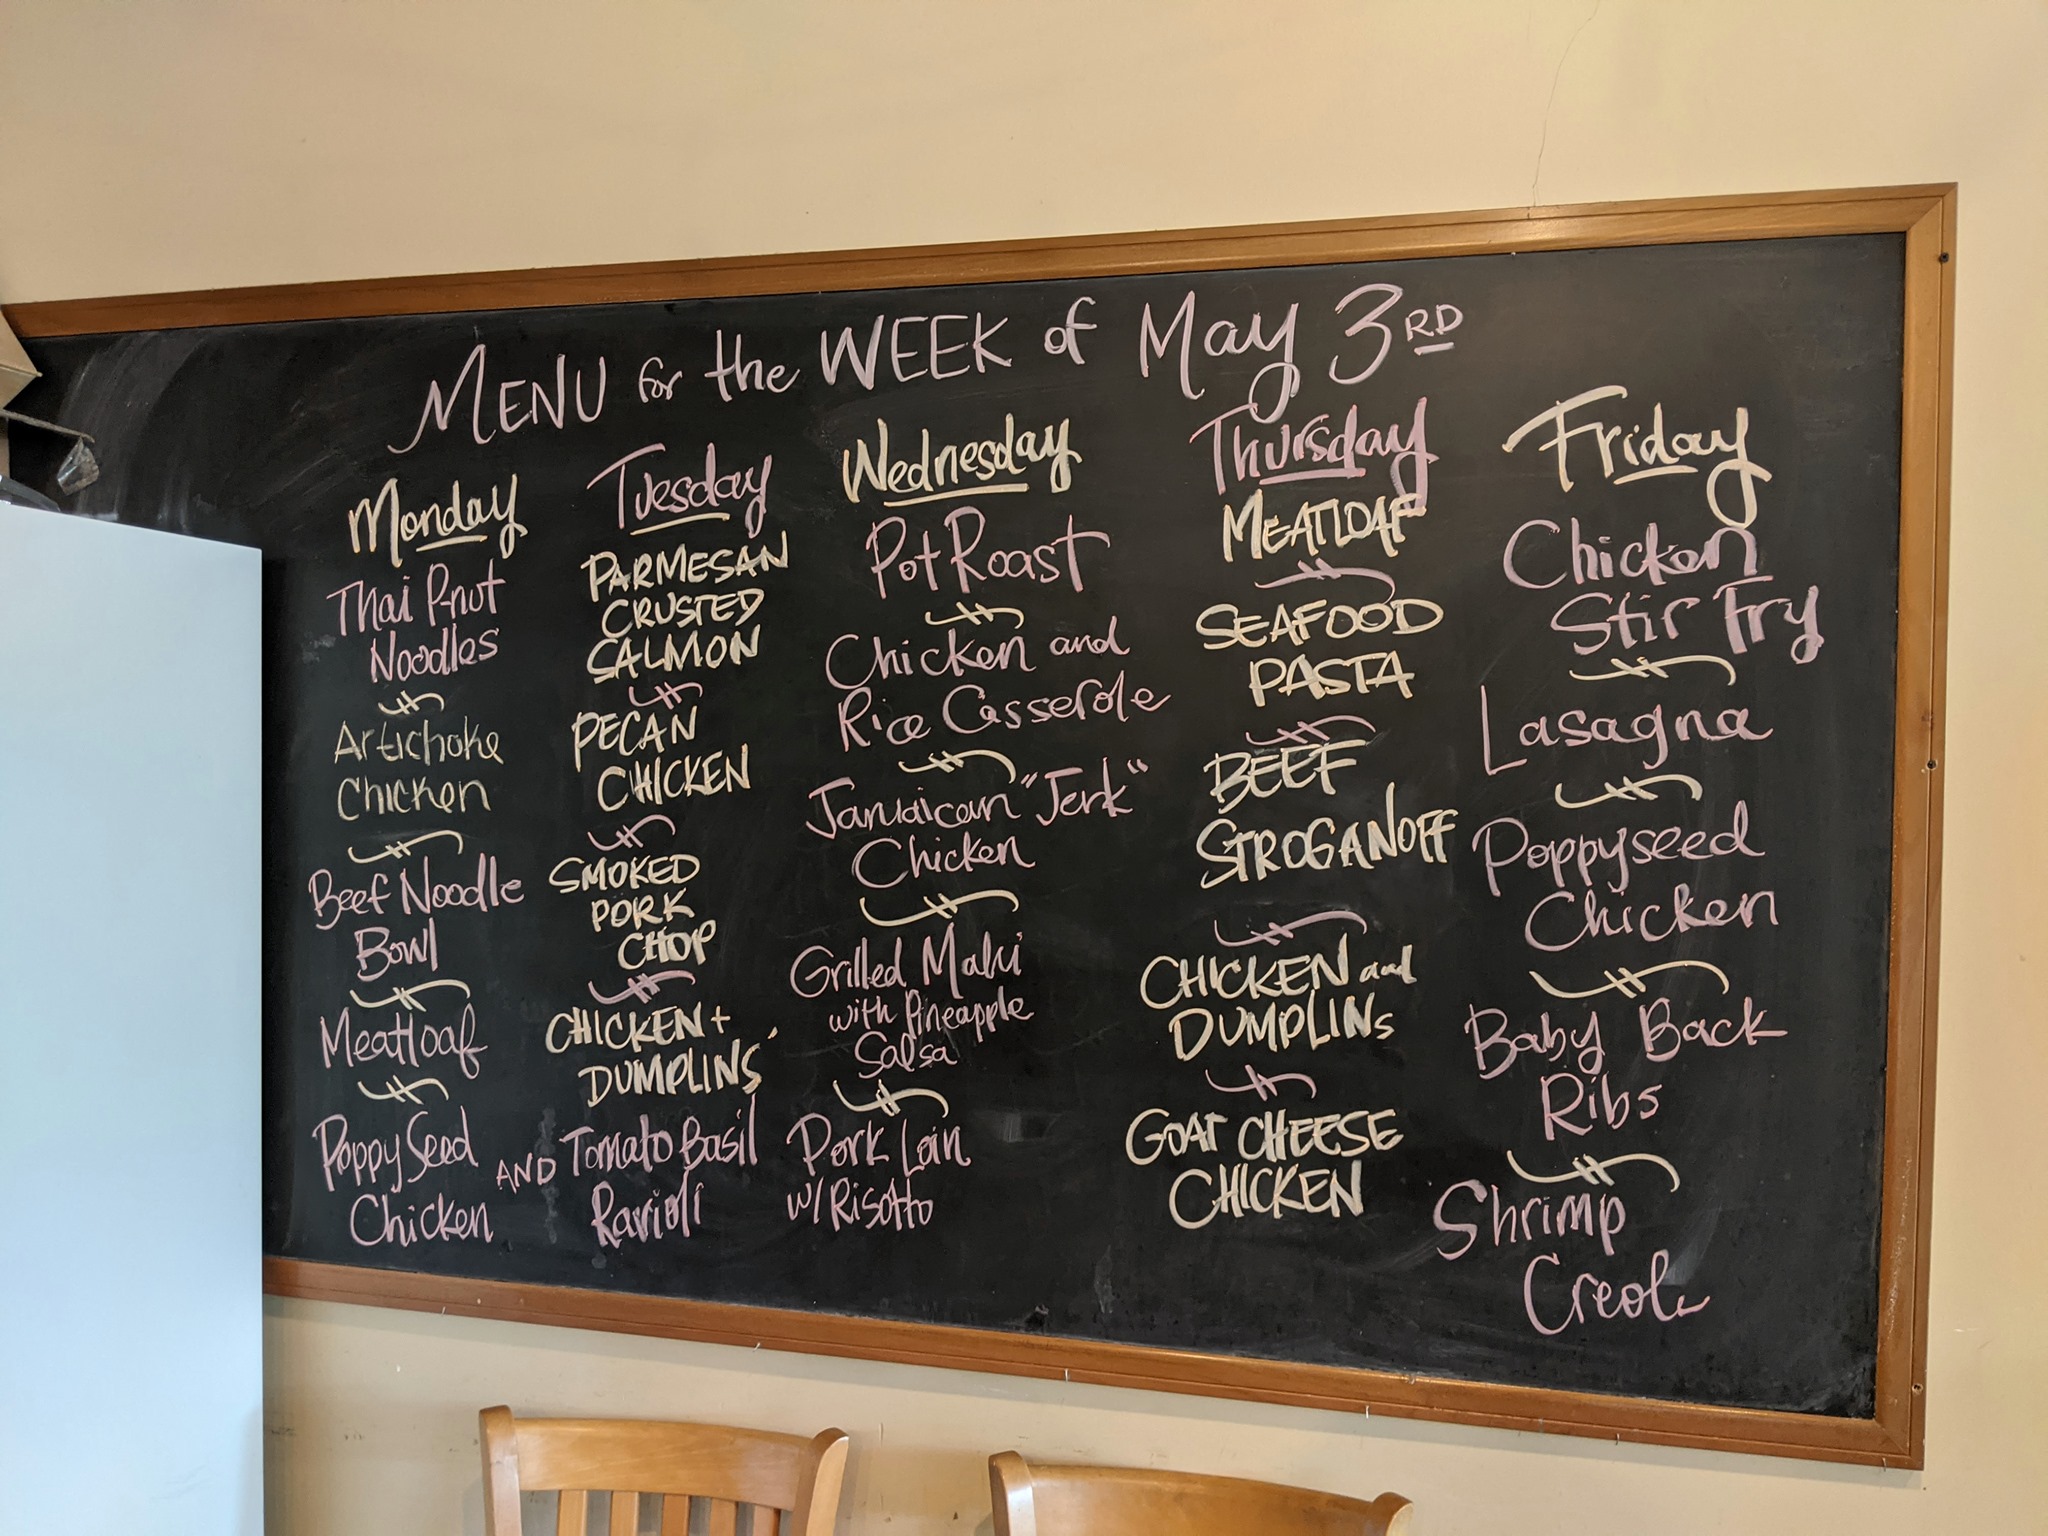 MENU for the WEEK of May 3RD
Monday
Thai P-nut
Noodles
Artichoke
Chicken
Beef Noodle
Bowl
Meatloaf
Poppy Seed
Chicken
Tuesday
PARMESAN
CRUSTED
SALMON
PECAN
CHICKEN
SMOKED
PORK
CHOP
CHICKEN +
DUMPLINS'
AND Tomato Basil
Ravioli
Wednesday
Pot Roast
Chicken and
Rice Casserole
Jamaican "Jerk"
Chicken
Grilled Mahi
with Pineapple
Salsa
Pork Loin
w/ Risotto
Thursday
MEATLOAF
SEAFOOD
PASTA
BEEF
STROGANOFF
CHICKEN and
DUMPLINs
GOAT CHEESE
CHICKEN
Friday
Chicken
Stir Fry
Lasagna
Poppyseed
Chicken
Baby Back
Ribs
Shrimp
Creole